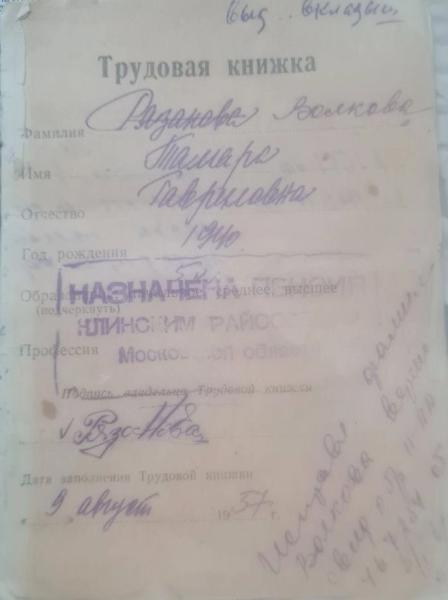 Выд. вкладыш
Трудовая книжка
Фамилия Рязанова Волкова
Имя Тамара
Отчество Гавриловна
Год рождения 1940
Образование среднее, высшее
(подчеркнуть)
НАЗНАЧЕНА ПЕНСИЯ
КЛИНСКИМ РАЙСО
Профессия
Московской облас
Подпись владельца Трудовой книжки
Рязанова
Дата заполнения Трудовой книжки
9 август 1957 г.
Волкова